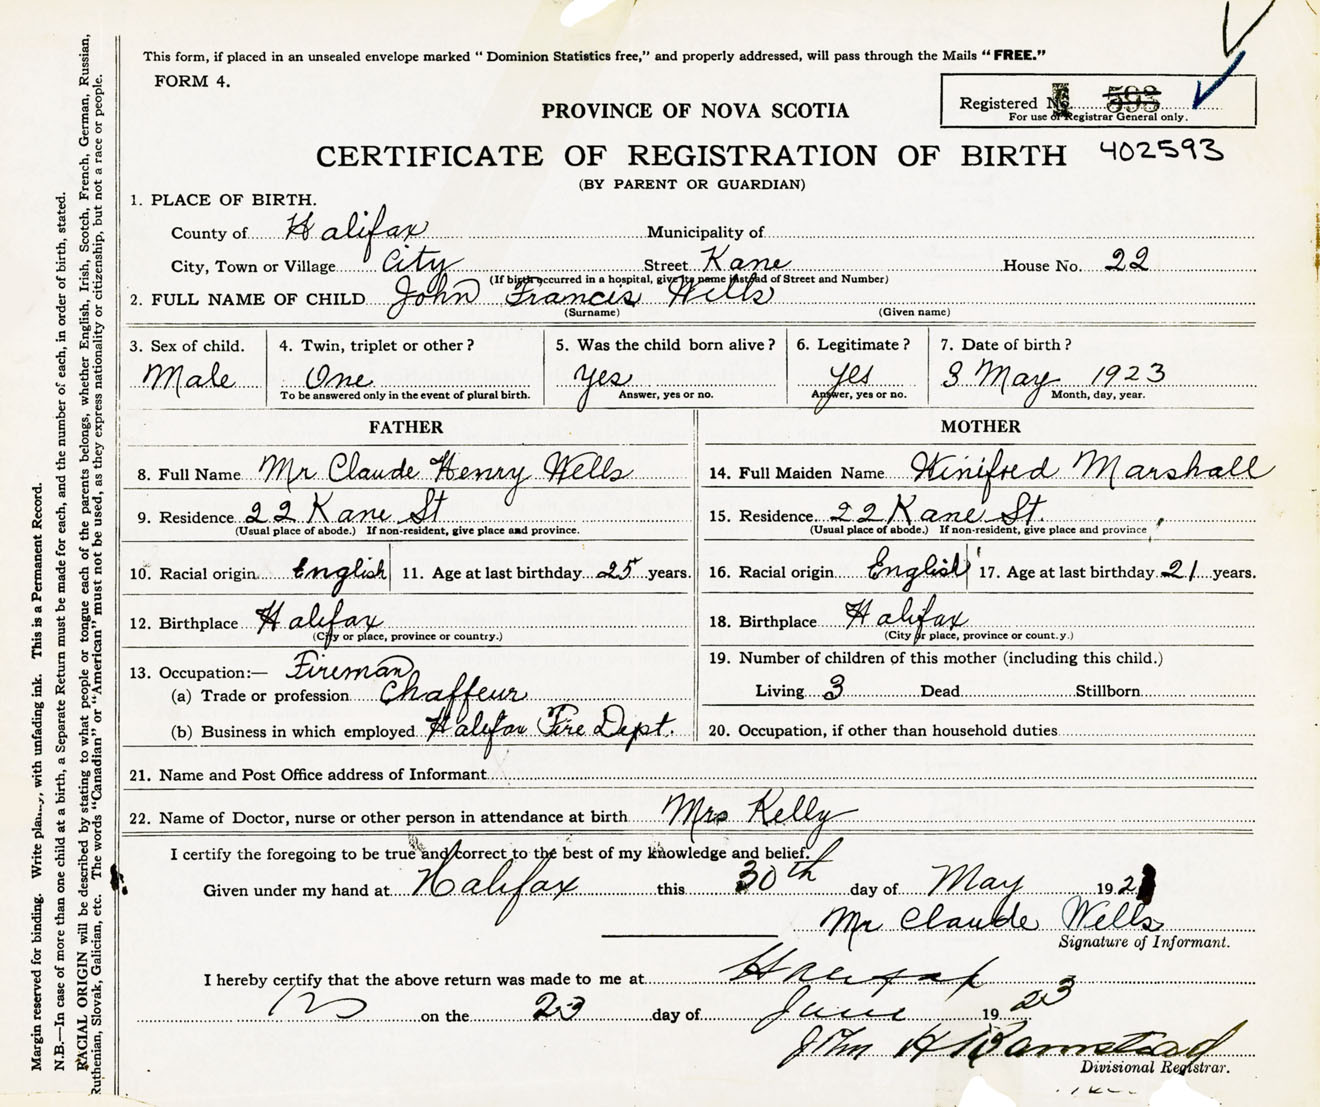 This form, if placed in an unsealed envelope marked “ Dominion Statistics free,” and properly addressed, will pass through the Mails “ FREE.”
FORM 4.
Registered No. 593
For use of Registrar General only.
PROVINCE OF NOVA SCOTIA
CERTIFICATE OF REGISTRATION OF BIRTH 402593
(BY PARENT OR GUARDIAN)
1. PLACE OF BIRTH.
County of Halifax Municipality of
City, Town or Village City Street Kane House No. 22
(If birth occurred in a hospital, give its name instead of Street and Number)
2. FULL NAME OF CHILD John Francis Wells
(Surname) (Given name)
3. Sex of child. 4. Twin, triplet or other ? 5. Was the child born alive ? 6. Legitimate ? 7. Date of birth ?
Male One Yes yes 3 May 1923
To be answered only in the event of plural birth. Answer, yes or no. Answer, yes or no. Month, day, year.
FATHER MOTHER
8. Full Name Mr Claude Henry Wells 14. Full Maiden Name Winifred Marshall
9. Residence 22 Kane St 15. Residence 22 Kane St.
(Usual place of abode.) If non-resident, give place and province. (Usual place of abode.) If non-resident, give place and province
10. Racial origin English 11. Age at last birthday 25 years. 16. Racial origin English 17. Age at last birthday 21 years.
12. Birthplace Halifax 18. Birthplace Halifax
(City or place, province or country.) (City or place, province or count.y.)
13. Occupation:— Fireman 19. Number of children of this mother (including this child.)
(a) Trade or profession Chaffeur Living 3 Dead Stillborn
(b) Business in which employed Halifax Fire Dept. 20. Occupation, if other than household duties
21. Name and Post Office address of Informant
22. Name of Doctor, nurse or other person in attendance at birth Mrs Kelly
I certify the foregoing to be true and correct to the best of my knowledge and belief.
Given under my hand at Halifax this 30th day of May 192
Mr Claude Wells
Signature of Informant.
I hereby certify that the above return was made to me at Halifax
on the 23 day of June 1923
John H
Divisional Registrar.
Margin reserved for binding. Write plainly, with unfading ink. This is a Permanent Record.
N.B.—In case of more than one child at a birth, a Separate Return must be made for each, and the number of each, in order of birth, stated.
RACIAL ORIGIN will be described by stating to what people or tongue each of the parents belongs, whether English, Irish, Scotch, French, German, Russian,
Ruthenian, Slovak, Galician, etc. The words “Canadian” or “American” must not be used, as they express nationality or citizenship, but not a race or people.